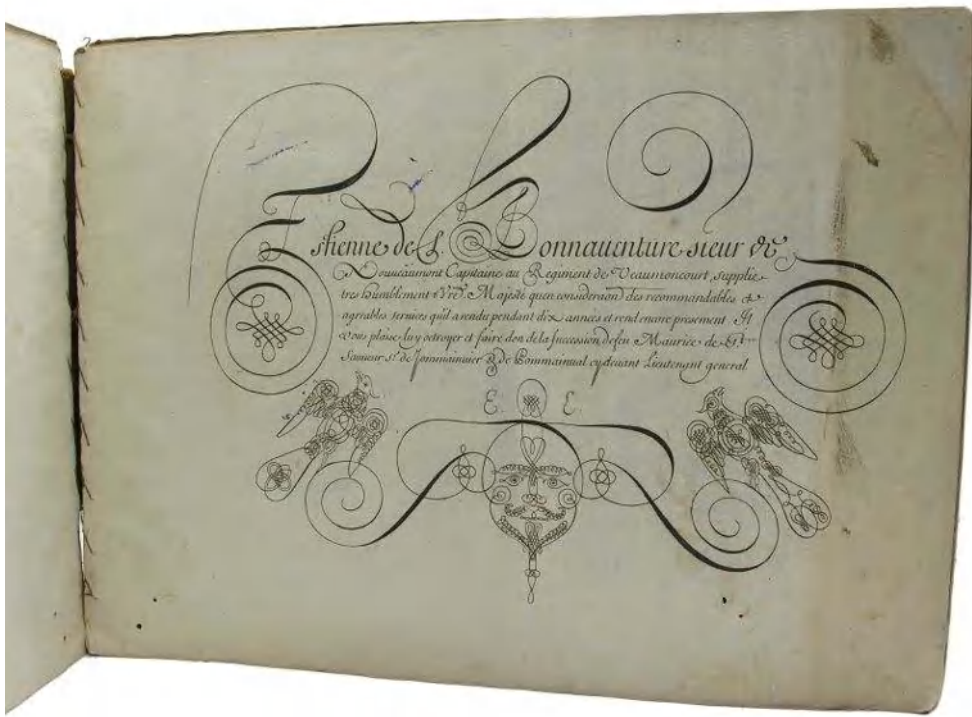 Estienne de S. Bonnauenture sieur de
Nouueaumont Capitaine au Regiment de Veaumoncourt, supplie
tres humblement Vre. Majesté qu'en consideraõn des recommandables et
agreables seruices qu'il a rendu pendant dix années et rend encore presement. Il
vous plaise luy octroyer et faire don de la succession de feu Maurice de St.
Sr. de et de Pommainual cy deuant Lieutenant general
E. E.